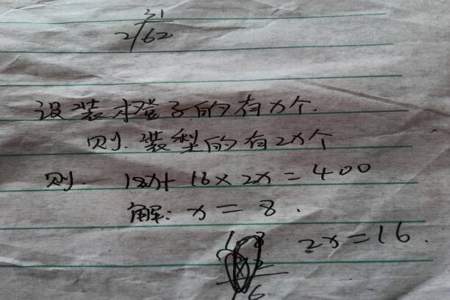 31
2/62
设装橙子的有x个.
则.装梨的有2x个
则. 18x+16×2x=400
解:x=8.
2x=16.